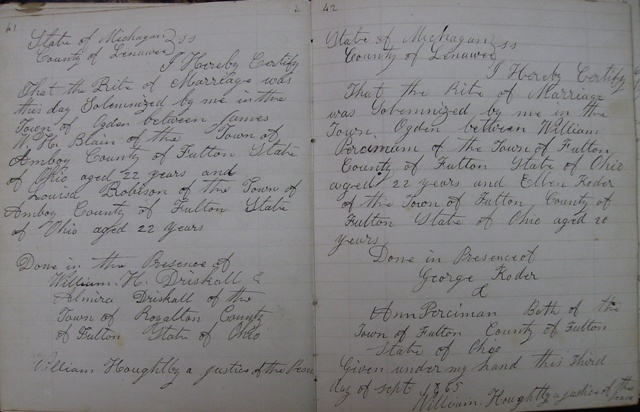 41
State of Michagan } ss
County of Lenawee
I Hereby Certify
That the Rite of Marriage was
this day Solemnized by me in the
Town of Ogden between James
W. H. Blain of the Town of
Amboy County of Fulton State
of Ohio aged 22 years and
Louisa Robtson of the Town of
Amboy County of Fulton State
of Ohio aged 22 years
Done in the Presence of
William. H. Driskall &
Almira Driskall of the
Town of Royalton County
of Fulton State of Ohio
William Houghtby a justies of the Peace
42
State of Michagan } ss
County of Lenawee
I Hereby Certify
That the Rite of Marriage
was Solemnized by me in the
Town. Ogden between William
Perciman of the Town of Fulton
County of Fulton State of Ohio
agred 22 years and Ellen Koder
of the Town of Fulton County of
Fulton State of Ohio aged 20
years
Done in Presence of
George Koder
&
Ann Perciman Both of the
Town of Fulton County of Fulton
State of Ohio
Given under my hand this Third
day of sept 1865
William. Houghtby a justies of the Peace